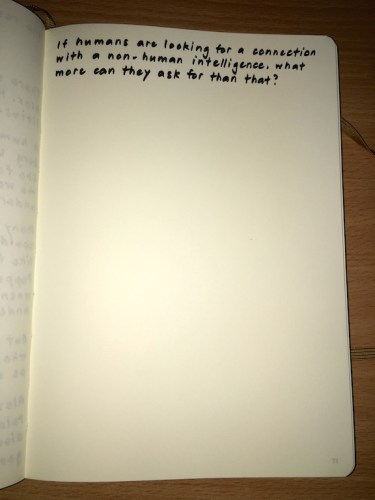 If humans are looking for a connection
with a non-human intelligence, what
more can they ask for than that?